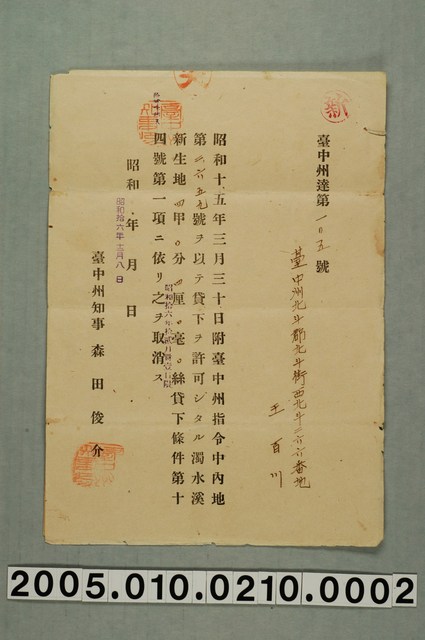 臺中州達第一〇五號
臺中州北斗郡北斗街西北斗二六六番地
王百川
昭和十五年三月三十日附臺中州指令中內地
第二六五九號ヲ以テ貸下ヲ許可シタル濁水溪
新生地四甲〇分四厘〇毫〇絲貸下條件第十
四號第一項ニ依リ之ヲ取消ス
昭和 年 月 日
昭和拾六年 月八日
臺中州知事 森田俊介
2005.010.0210.0002